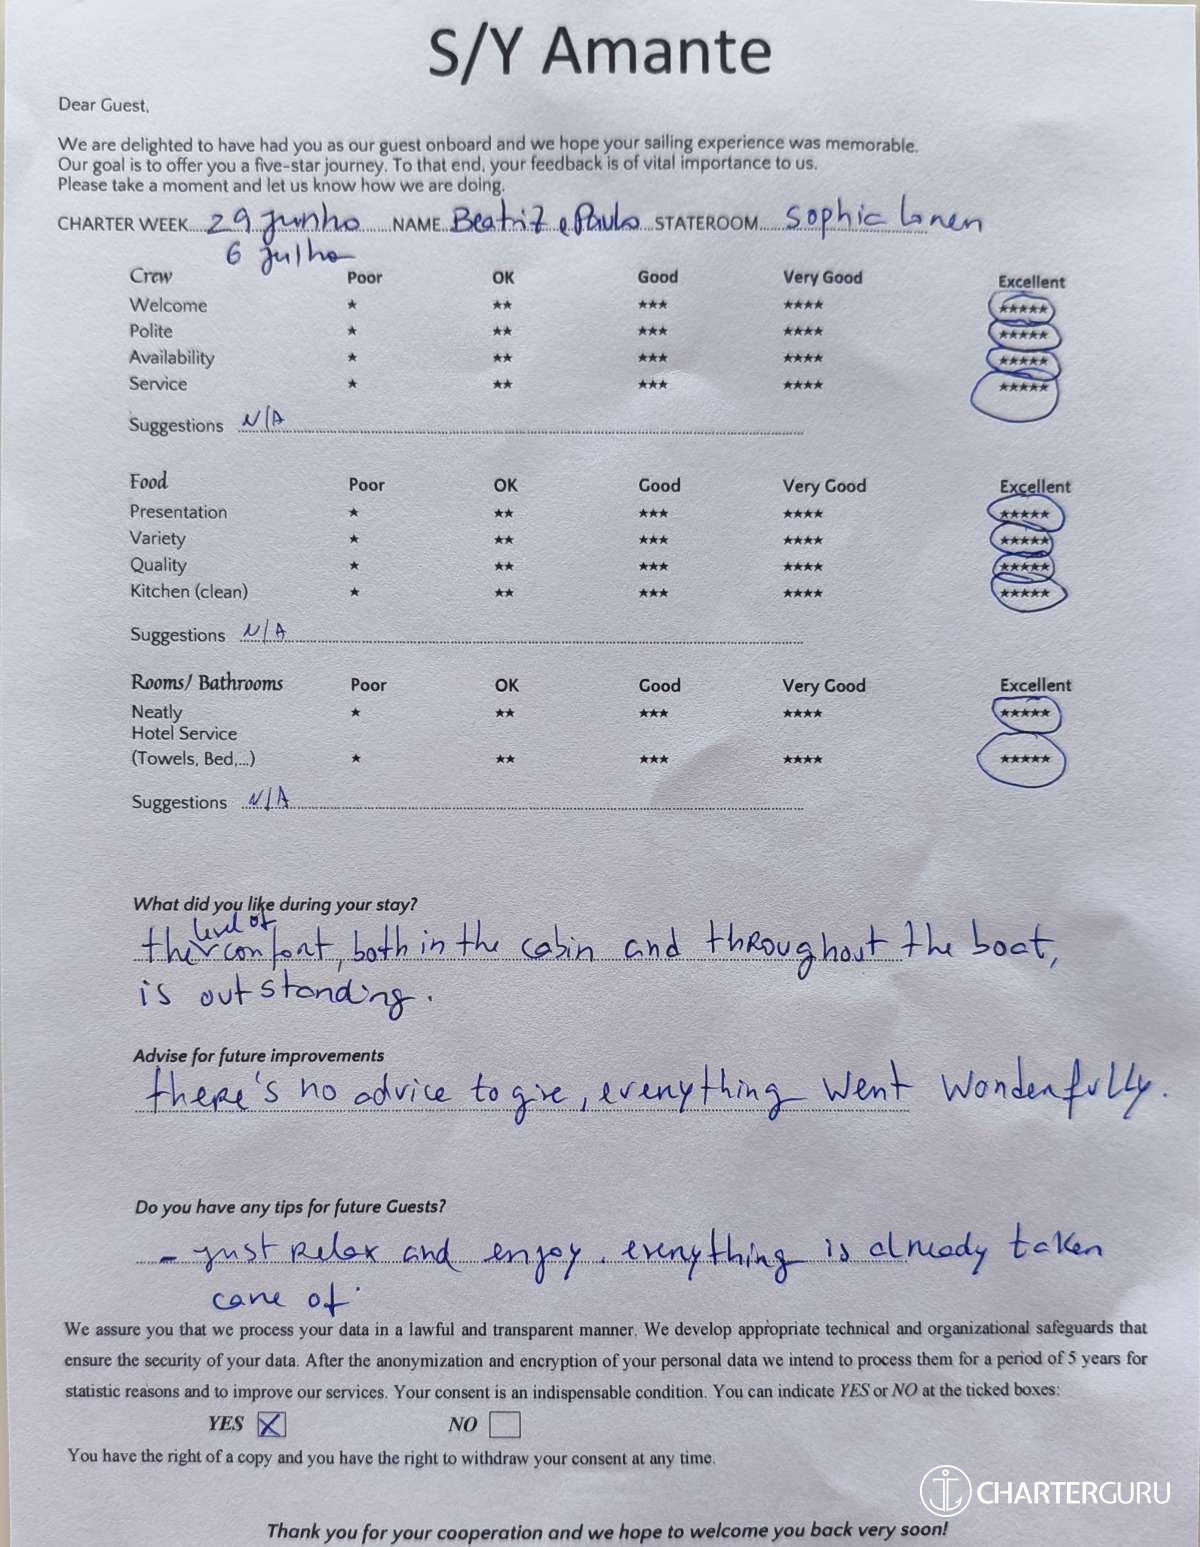 S/Y Amante
Dear Guest,
We are delighted to have had you as our guest onboard and we hope your sailing experience was memorable.
Our goal is to offer you a five-star journey. To that end, your feedback is of vital importance to us.
Please take a moment and let us know how we are doing.
CHARTER WEEK 29 junho NAME Beatriz e Paulo STATEROOM Sophie
6 julho
Crew Poor OK Good Very Good Excellent
Welcome ★ ★★ ★★★ ★★★★ ★★★★★
Polite ★ ★★ ★★★ ★★★★ ★★★★★
Availability ★ ★★ ★★★ ★★★★ ★★★★★
Service ★ ★★ ★★★ ★★★★ ★★★★★
Suggestions N/A
Food Poor OK Good Very Good Excellent
Presentation ★ ★★ ★★★ ★★★★ ★★★★★
Variety ★ ★★ ★★★ ★★★★ ★★★★★
Quality ★ ★★ ★★★ ★★★★ ★★★★★
Kitchen (clean) ★ ★★ ★★★ ★★★★ ★★★★★
Suggestions N/A
Rooms/ Bathrooms Poor OK Good Very Good Excellent
Neatly ★ ★★ ★★★ ★★★★ ★★★★★
Hotel Service
(Towels, Bed,...) ★ ★★ ★★★ ★★★★ ★★★★★
Suggestions N/A
What did you like during your stay?
level of
the confort, both in the cabin and throughout the boat,
is outstanding.
Advise for future improvements
there's no advice to give, everything went wonderfully.
Do you have any tips for future Guests?
- just relax and enjoy. everything is already taken
care of.
We assure you that we process your data in a lawful and transparent manner. We develop appropriate technical and organizational safeguards that
ensure the security of your data. After the anonymization and encryption of your personal data we intend to process them for a period of 5 years for
statistic reasons and to improve our services. Your consent is an indispensable condition. You can indicate YES or NO at the ticked boxes:
YES X NO
You have the right of a copy and you have the right to withdraw your consent at any time.
CHARTERGURU
Thank you for your cooperation and we hope to welcome you back very soon!